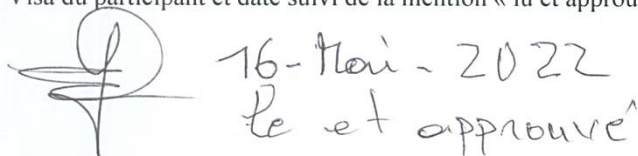 Visa du participant et date suivi de la mention « lu et approu
16-Mai-2022
le et approuvé